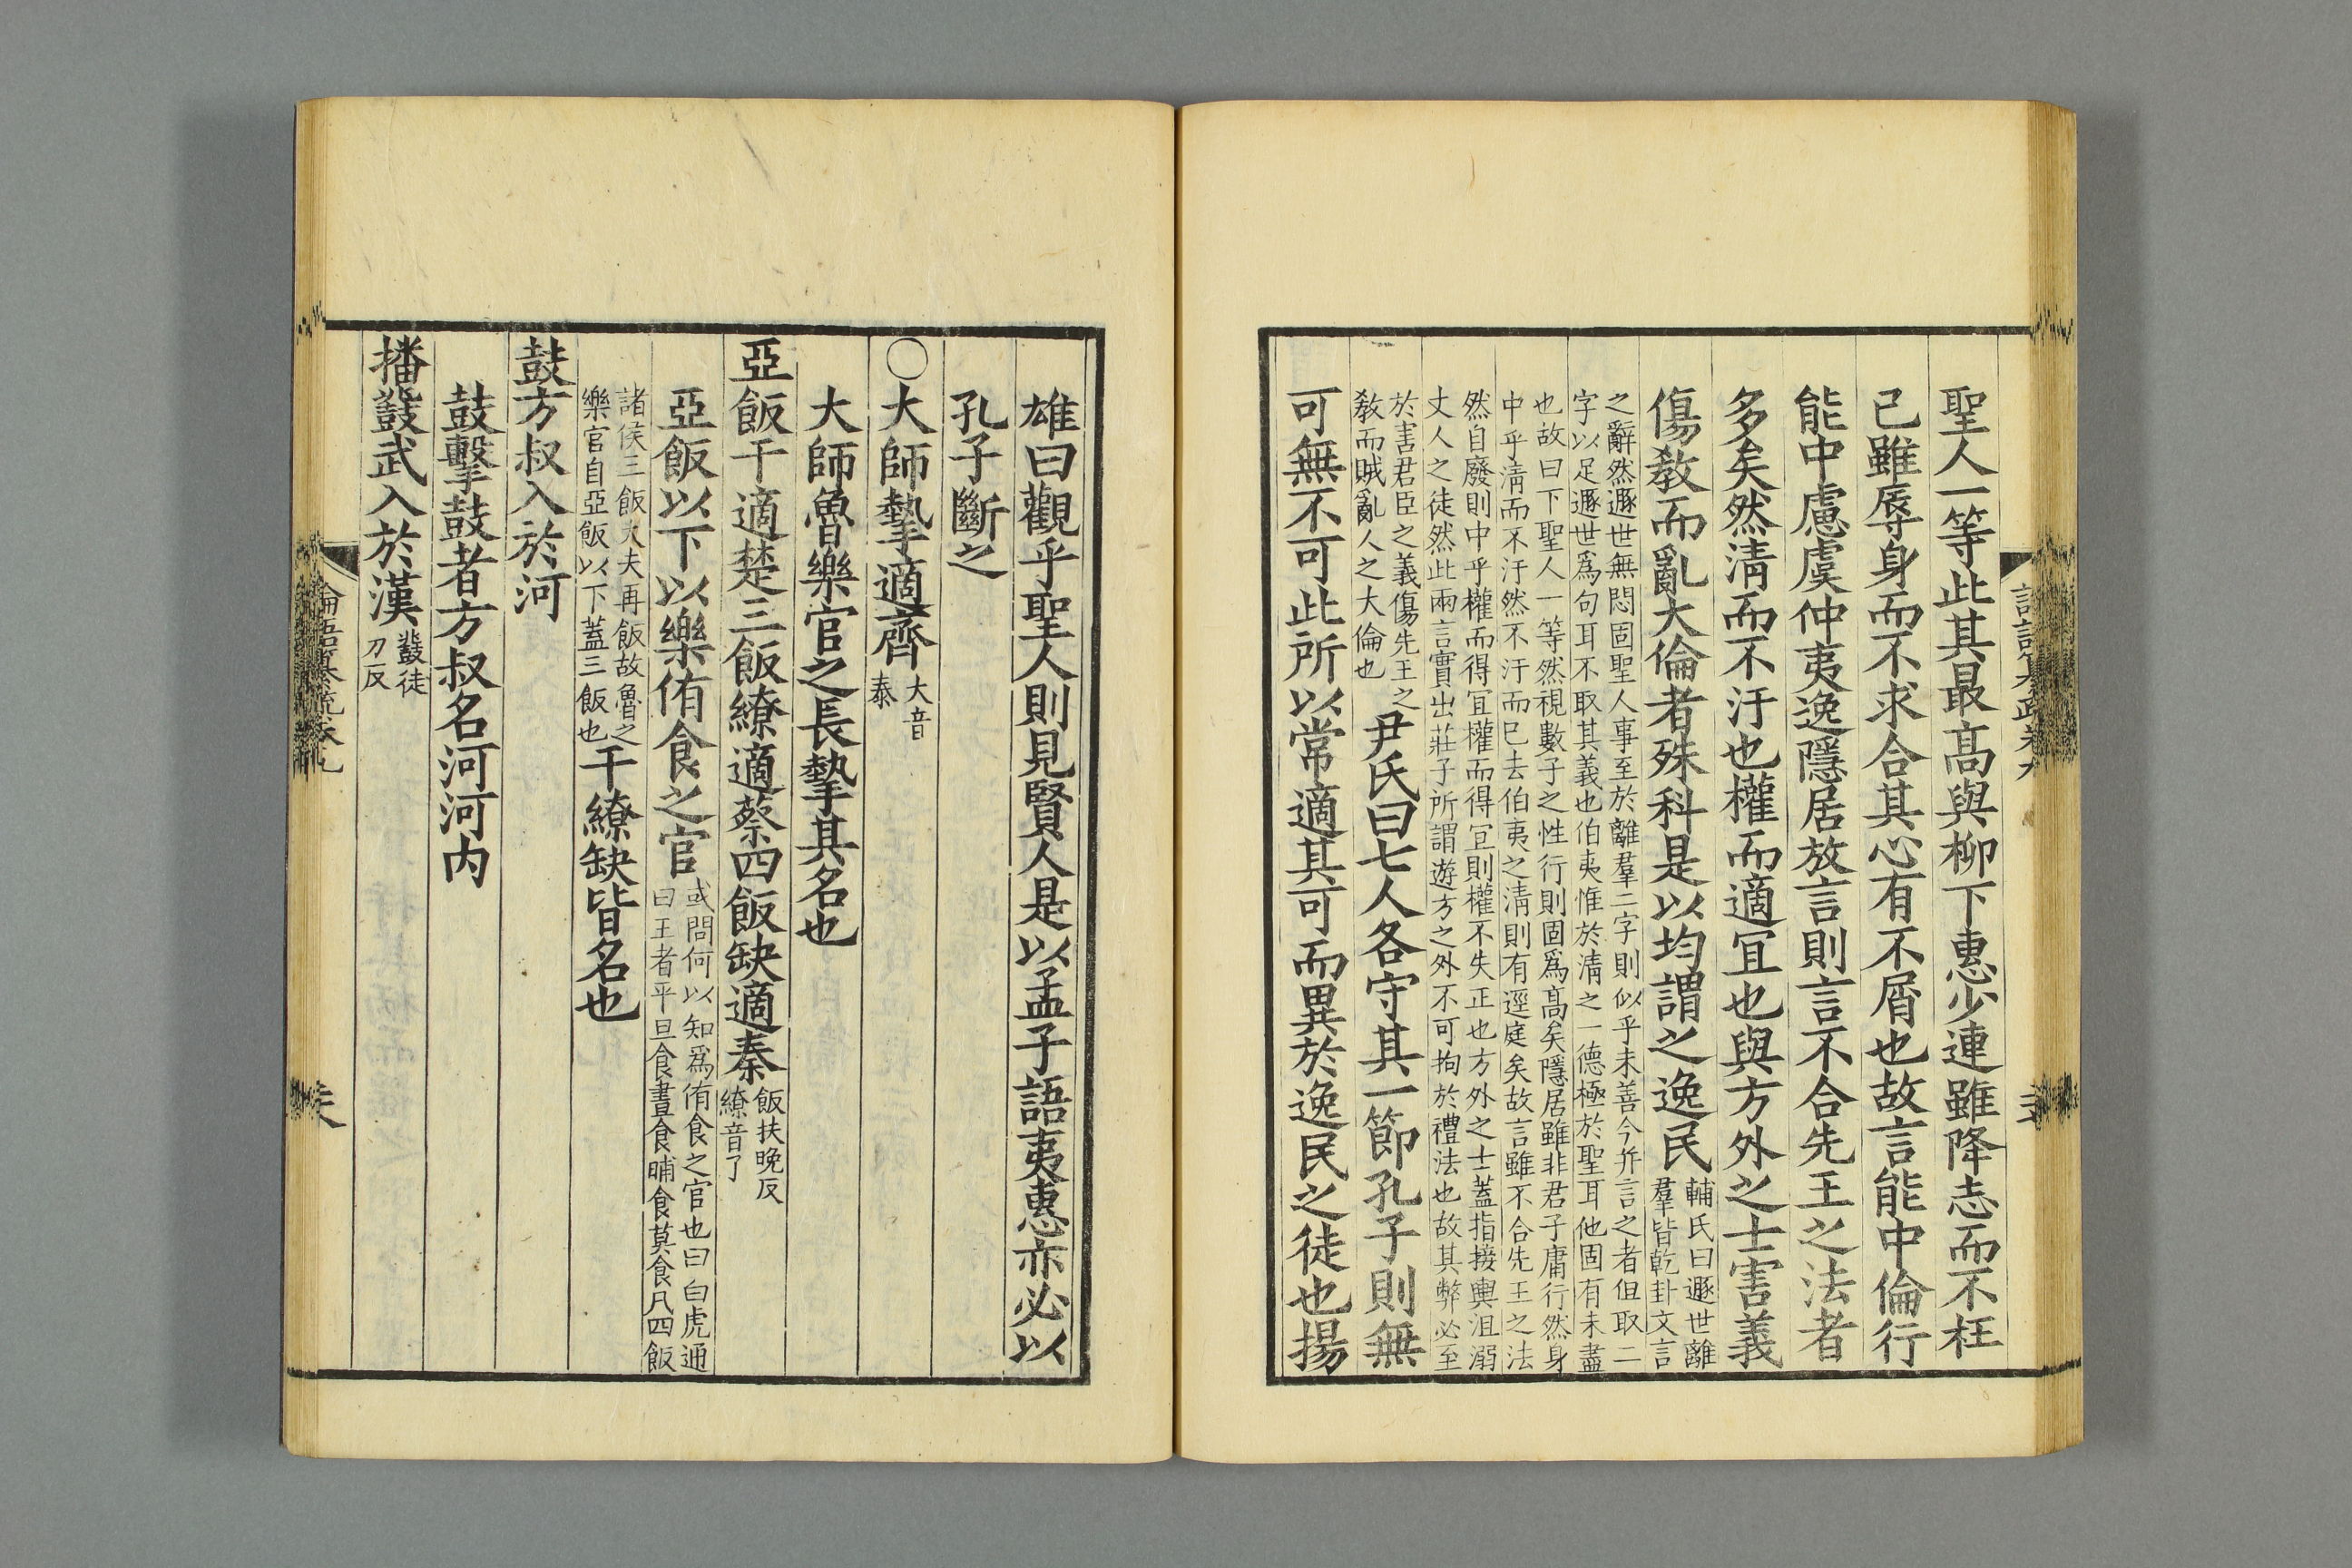 聖人一等此其最髙與柳下惠少連雖降志而不枉
己雖辱身而不求合其心有不屑也故言能中倫行
能中慮虞仲夷逸隱居放言則言不合先王之法者
多矣然淸而不汙也權而適宜也與方外之士害義
傷敎而亂大倫者殊科是以均謂之逸民
輔氏曰遯世離
羣皆乾卦文言
之辭然遯世無悶固聖人事至於離羣二字則似乎未善今幷言之者但取二
字以足遯世爲句耳不取其義也伯夷惟於淸之一德極於聖耳他固有未盡
也故曰下聖人一等然視數子之性行則固爲髙矣隱居雖非君子庸行然身
中乎淸而不汙然不汙而已去伯夷之淸則有逕庭矣故言雖不合先王之法
然自廢則中乎權而得宜權而得宜則權不失正也方外之士蓋指接輿沮溺
丈人之徒然此兩言實出莊子所謂遊方之外不可拘於禮法也故其弊必至
於害君臣之義傷先王之
敎而賊亂人之大倫也
尹氏曰七人各守其一節孔子則無
可無不可此所以常適其可而異於逸民之徒也揚
雄曰觀乎聖人則見賢人是以孟子語夷惠亦必以
孔子斷之
○大師摯適齊
大音
泰
大師魯樂官之長摯其名也
亞飯干適楚三飯繚適蔡四飯缺適秦
飯扶晚反
繚音了
亞飯以下以樂侑食之官
或問何以知爲侑食之官也曰白虎通
曰王者平旦食晝食晡食莫食凡四飯
諸侯三飯大夫再飯故魯之
樂官自亞飯以下蓋三飯也
干繚缺皆名也
鼓方叔入於河
鼓擊鼓者方叔名河河內
播鼗武入於漢
鼗徒
刀反
論語纂疏卷九